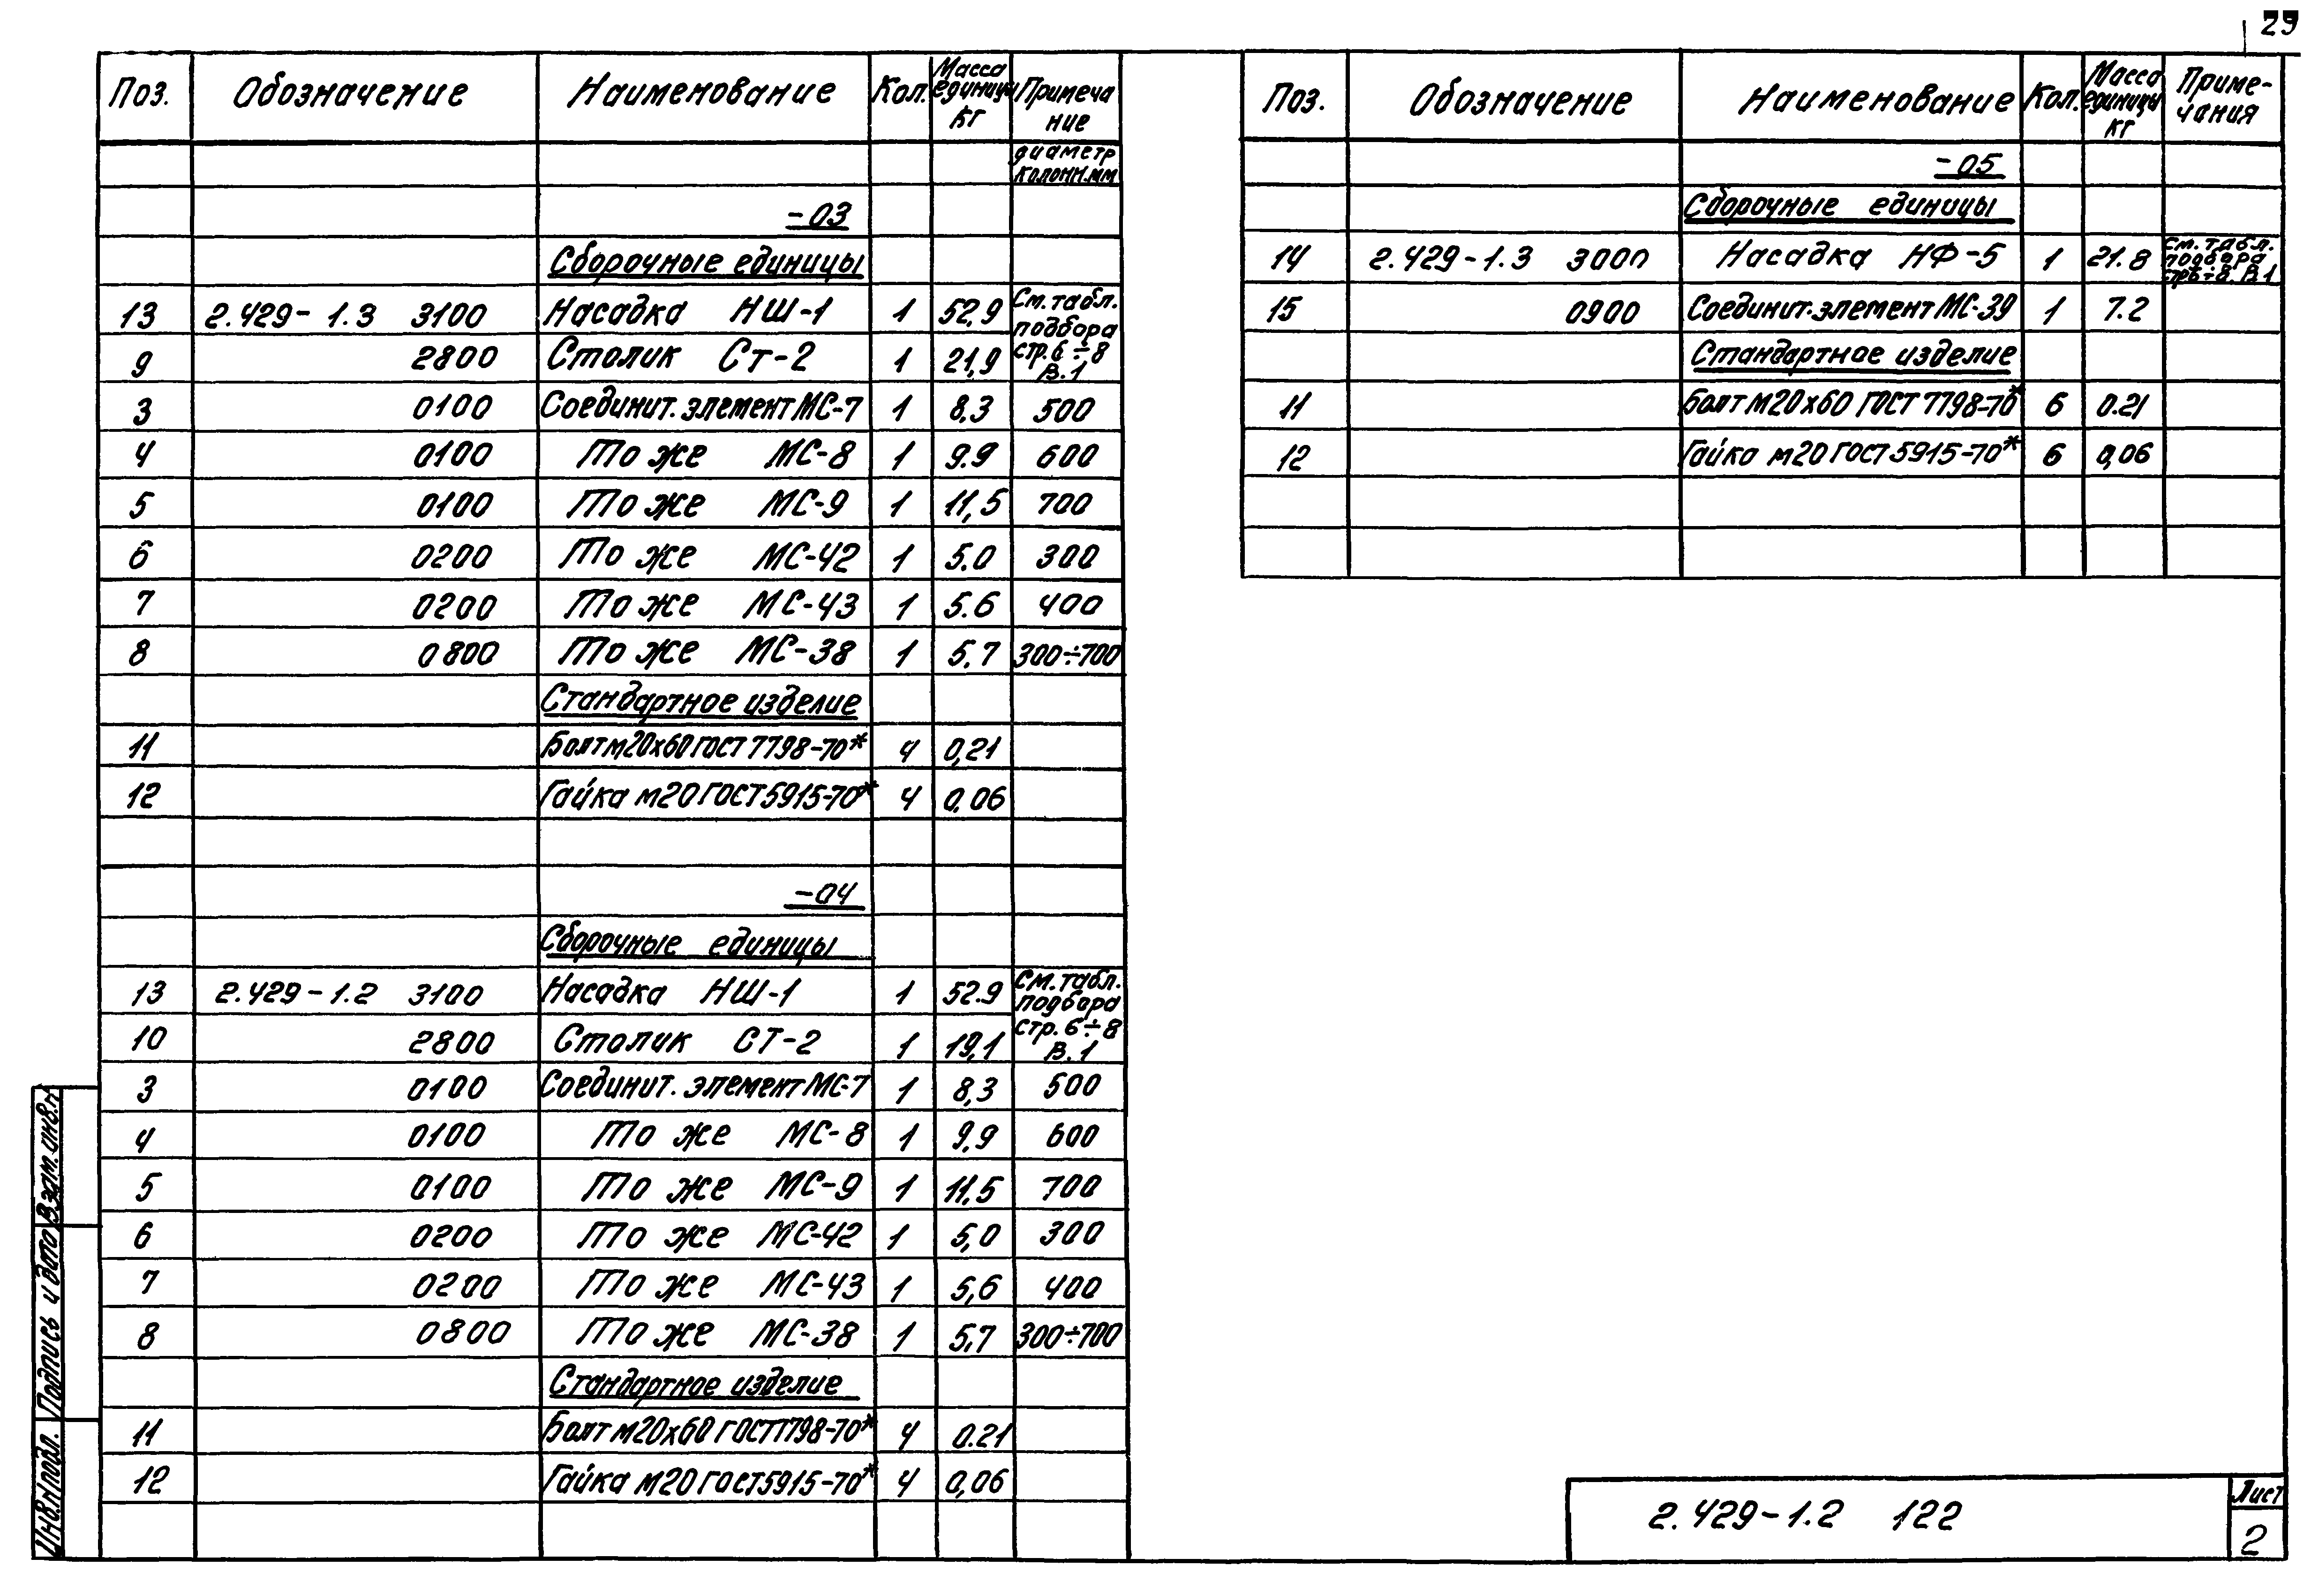 29
Поз. Обозначение Наименование Кол. Масса единицы кг Примеча ние
диаметр колонн.мм
-03
Сборочные единицы
13 2.429-1.3 3100 Насадка НШ-1 1 52,9 См. табл. подбора
9 2800 Столик Ст-2 1 21,9 стр. 6÷8 В.1
3 0100 Соединит. элемент МС-7 1 8,3 500
4 0100 То же МС-8 1 9.9 600
5 0100 То же МС-9 1 11,5 700
6 0200 То же МС-42 1 5.0 300
7 0200 То же МС-43 1 5.6 400
8 0800 То же МС-38 1 5,7 300÷700
Стандартное изделие
11 Болт м20х60 ГОСТ 7798-70* 4 0,21
12 Гайка м20 ГОСТ 5915-70* 4 0,06
-04
Сборочные единицы
13 2.429-1.2 3100 Насадка НШ-1 1 52.9 См. табл. подбора
10 2800 Столик СТ-2 1 19,1 стр. 6÷8 В.1
3 0100 Соединит. элемент МС-7 1 8,3 500
4 0100 То же МС-8 1 9,9 600
5 0100 То же МС-9 1 11,5 700
6 0200 То же МС-42 1 5,0 300
7 0200 То же МС-43 1 5,6 400
8 0800 То же МС-38 1 5,7 300÷700
Стандартное изделие
11 Болт м20х60 ГОСТ 7798-70* 4 0.21
12 Гайка м20 ГОСТ 5915-70* 4 0,06
Поз. Обозначение Наименование Кол. Масса единицы кг Приме- чания
-05
Сборочные единицы
14 2.429-1.3 3000 Насадка НФ-5 1 21.8 см. табл. подбора стр 6÷8. В.1
15 0900 Соединит. элемент МС-39 1 7.2
Стандартное изделие
11 Болт м20х60 ГОСТ 7798-70* 6 0.21
12 Гайка м20 ГОСТ 5915-70* 6 0,06
Инв.N подл. Подпись и дата Взам.инв.N
2.429-1.2 122
Лист
2